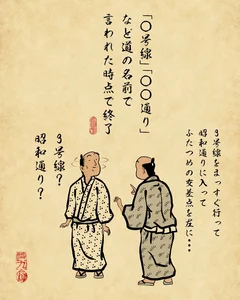 「〇号線」「〇〇通り」
など道の名前で
言われた時点で終了
3号線をまっすぐ行って
昭和通りに入って
ふたつめの交差点を左に・・・
3号線？
昭和通り？